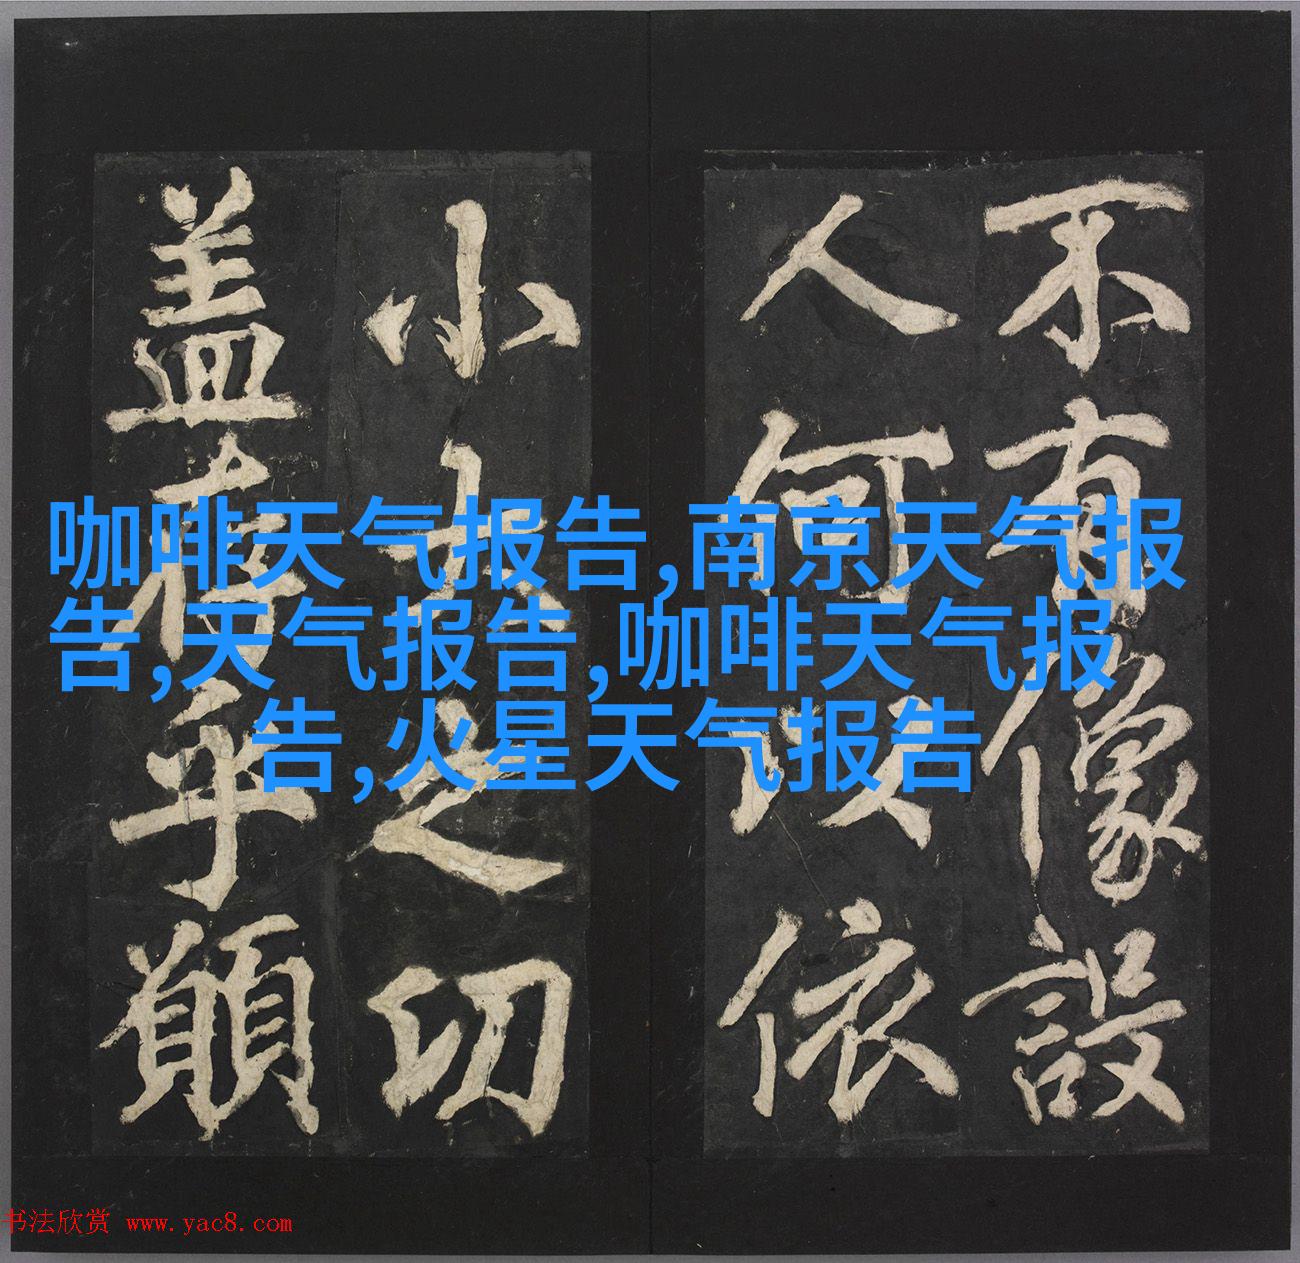 不有像設
人何以依
小大之切
盖存乎願
咖啡天气报告,南京天气报
告,天气报告,咖啡天气报
告,火星天气报告
书法欣赏 www.yac8.com